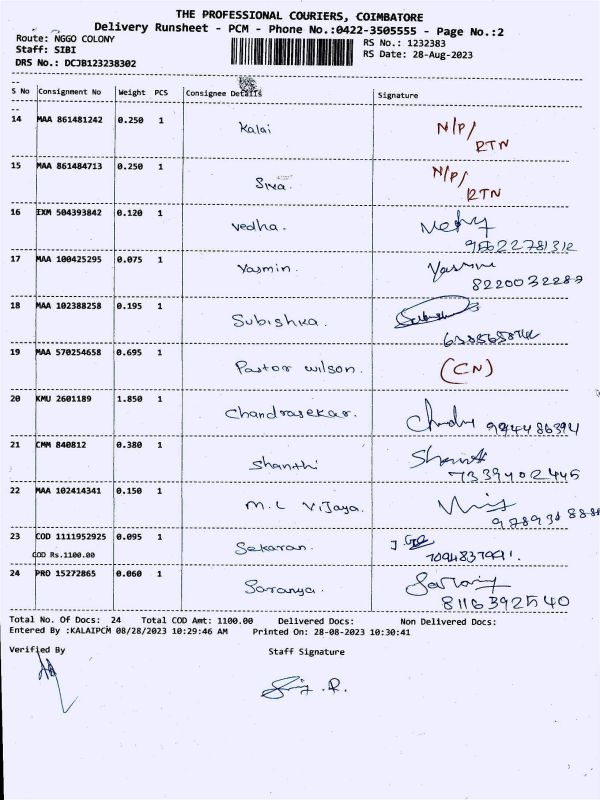 THE PROFESSIONAL COURIERS, COIMBATORE
Delivery Runsheet - PCM - Phone No.:0422-3505555 - Page No.:2
Route: NGGO COLONY RS No.: 1232383
Staff: SIBI RS Date: 28-Aug-2023
DRS No.: DCJB123238302
S No Consignment No Weight PCS Consignee Details Signature
14 MAA 861481242 0.250 1 Kalai N/P/ RTN
15 MAA 861484713 0.250 1 Siva. N/P/ RTN
16 EXM 504393842 0.120 1 Vedha.
17 MAA 100425295 0.075 1 Yasmin. 8220032287
18 MAA 102388258 0.195 1 Subishka.
19 MAA 570254658 0.695 1 Pastor Wilson. (CN)
20 KMU 2601189 1.850 1 Chandrasekar. 9944486394
21 CMM 840812 0.380 1 Shanthi 7339402445
22 MAA 102414341 0.150 1 M.L Vijaya.
23 COD 1111952925 0.095 1 Sekaran.
COD Rs.1100.00
24 PRO 15272865 0.060 1 Saranya. 8116392540
Total No. Of Docs: 24 Total COD Amt: 1100.00 Delivered Docs: Non Delivered Docs:
Entered By :KALAIPCM 08/28/2023 10:29:46 AM Printed On: 28-08-2023 10:30:41
Verified By Staff Signature